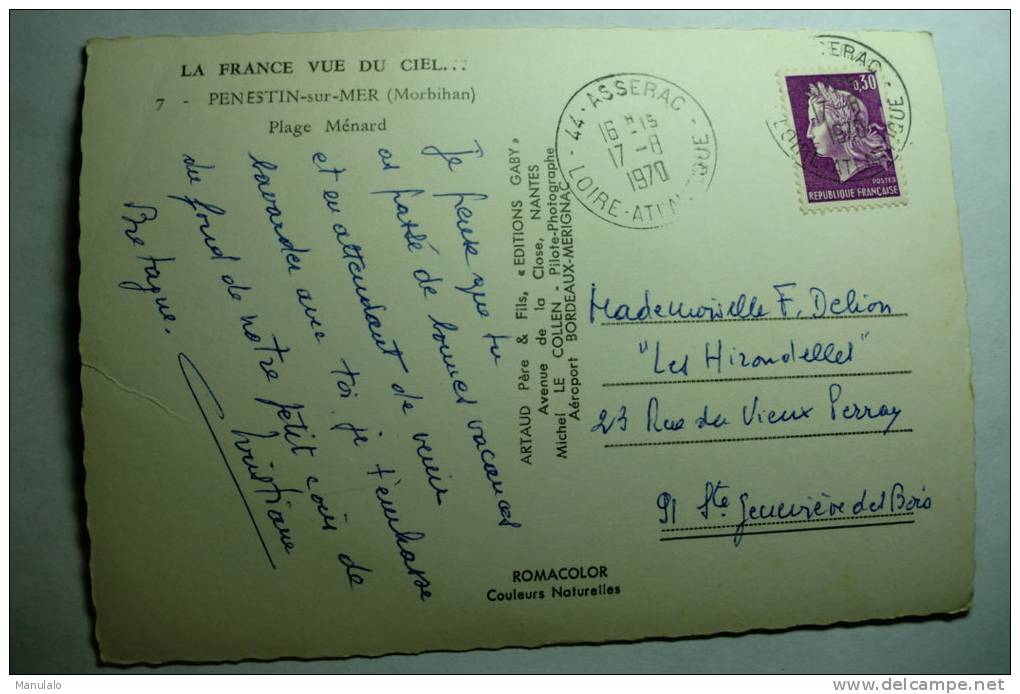 LA FRANCE VUE DU CIEL...
7 - PENESTIN-sur-MER (Morbihan)
Plage Ménard
Je pense que tu
as passé de bonnes vacances
et en attendant de venir
bavarder avec toi, je t'embrasse
du fond de notre petit coin de
Bretagne.
Christiane
ARTAUD Père & Fils, « EDITIONS GABY »
Avenue de la Close, NANTES
Michel LE COLLEN - Pilote-Photographe
Aéroport BORDEAUX-MERIGNAC
44 - ASSERAC -
16 H 15
17 - 8
1970
LOIRE-ATLANTIQUE
0,30
POSTES
REPUBLIQUE FRANÇAISE
Mademoiselle F. Delion
"Les Hirondelles"
23 Rue du Vieux Perray
91 Ste Geneviève des Bois
ROMACOLOR
Couleurs Naturelles
Manulalo
delcampe.net